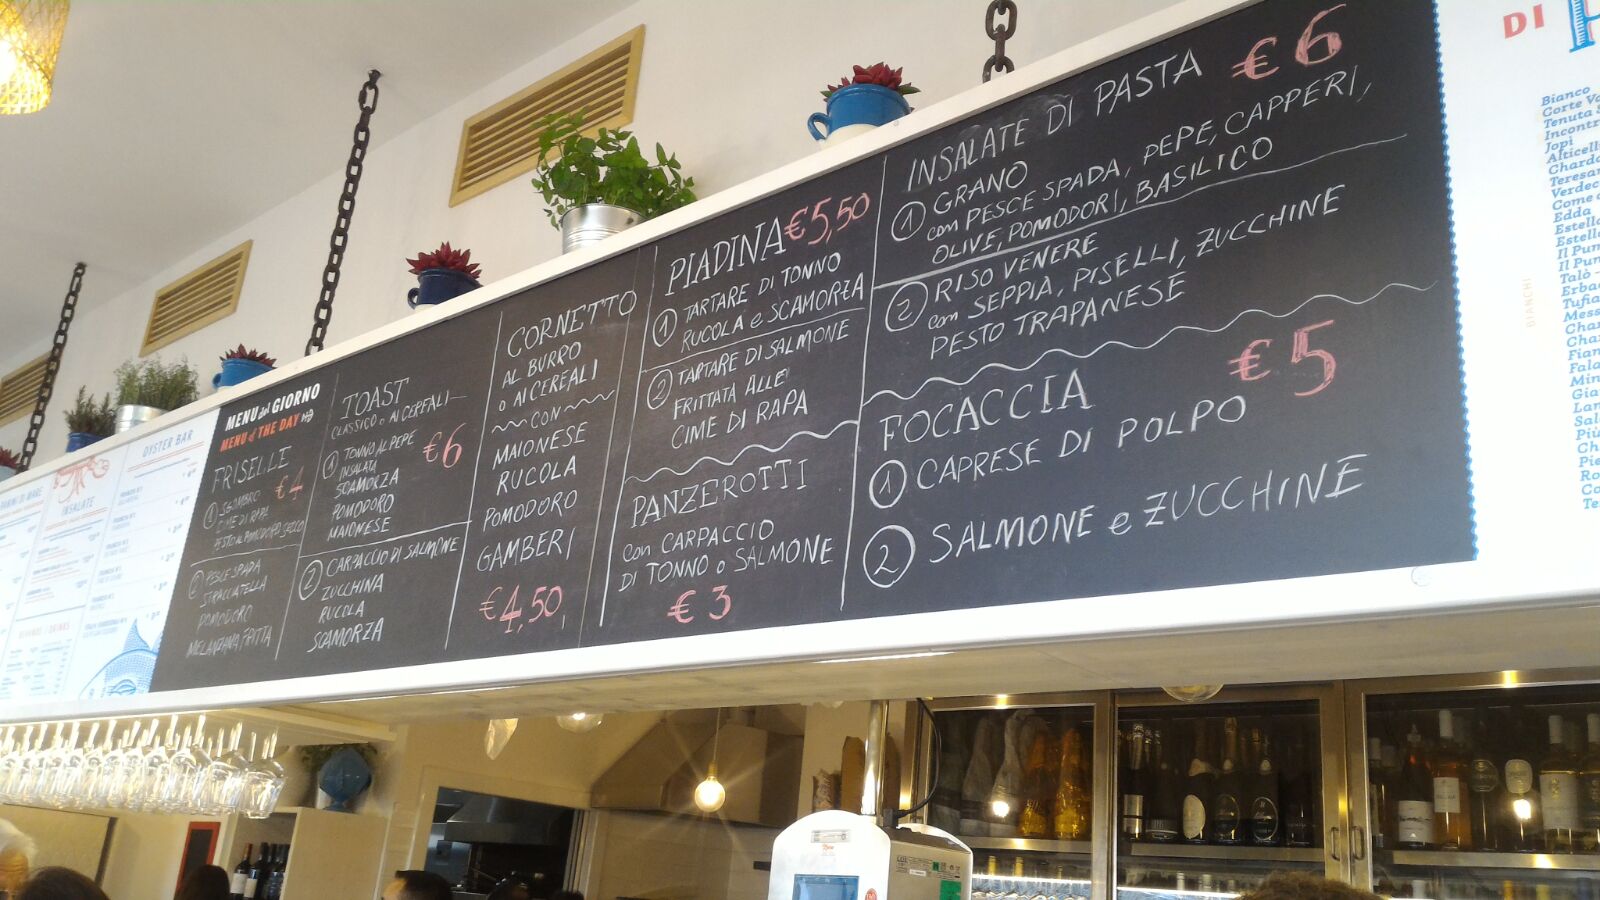 PANINI DI MARE
INSALATE
OYSTER BAR
MENU del GIORNO
MENU of THE DAY
FRISELLE
€ 4
1 SGOMBRO
CIME DI RAPA
PESTO AL POMODORO SECCO
2 PESCE SPADA
STRACCIATELLA
POMODORO
MELANZANA FRITTA
TOAST
CLASSICO o AI CEREALI
€6
1 TONNO AL PEPE
INSALATA
SCAMORZA
POMODORO
MAIONESE
2 CARPACCIO DI SALMONE
ZUCCHINA
RUCOLA
SCAMORZA
CORNETTO
AL BURRO
o AI CEREALI
CON
MAIONESE
RUCOLA
POMODORO
GAMBERI
€4,50
PIADINA €5,50
1 TARTARE DI TONNO
RUCOLA e SCAMORZA
2 TARTARE DI SALMONE
FRITTATA ALLE
CIME DI RAPA
PANZEROTTI
con CARPACCIO
DI TONNO o SALMONE
€ 3
INSALATE DI PASTA €6
1 GRANO
con PESCE SPADA, PEPE, CAPPERI,
OLIVE, POMODORI, BASILICO
2 RISO VENERE
con SEPPIA, PISELLI, ZUCCHINE
PESTO TRAPANESE
FOCACCIA € 5
1 CAPRESE DI POLPO
2 SALMONE e ZUCCHINE
DI
BIANCHI
Bianco
Corte
Tenuta
Incontr
Jopi
Alticell
Chardo
Teresa
Verdec
Come
Edda
Estell
Estell
Il Pun
Il Pun
Talò
Erba
Tufia
Mess
Char
Char
Fian
Fala
Min
Gia
Lan
Sal
Più
Ch
Pie
Ro
Co
Te